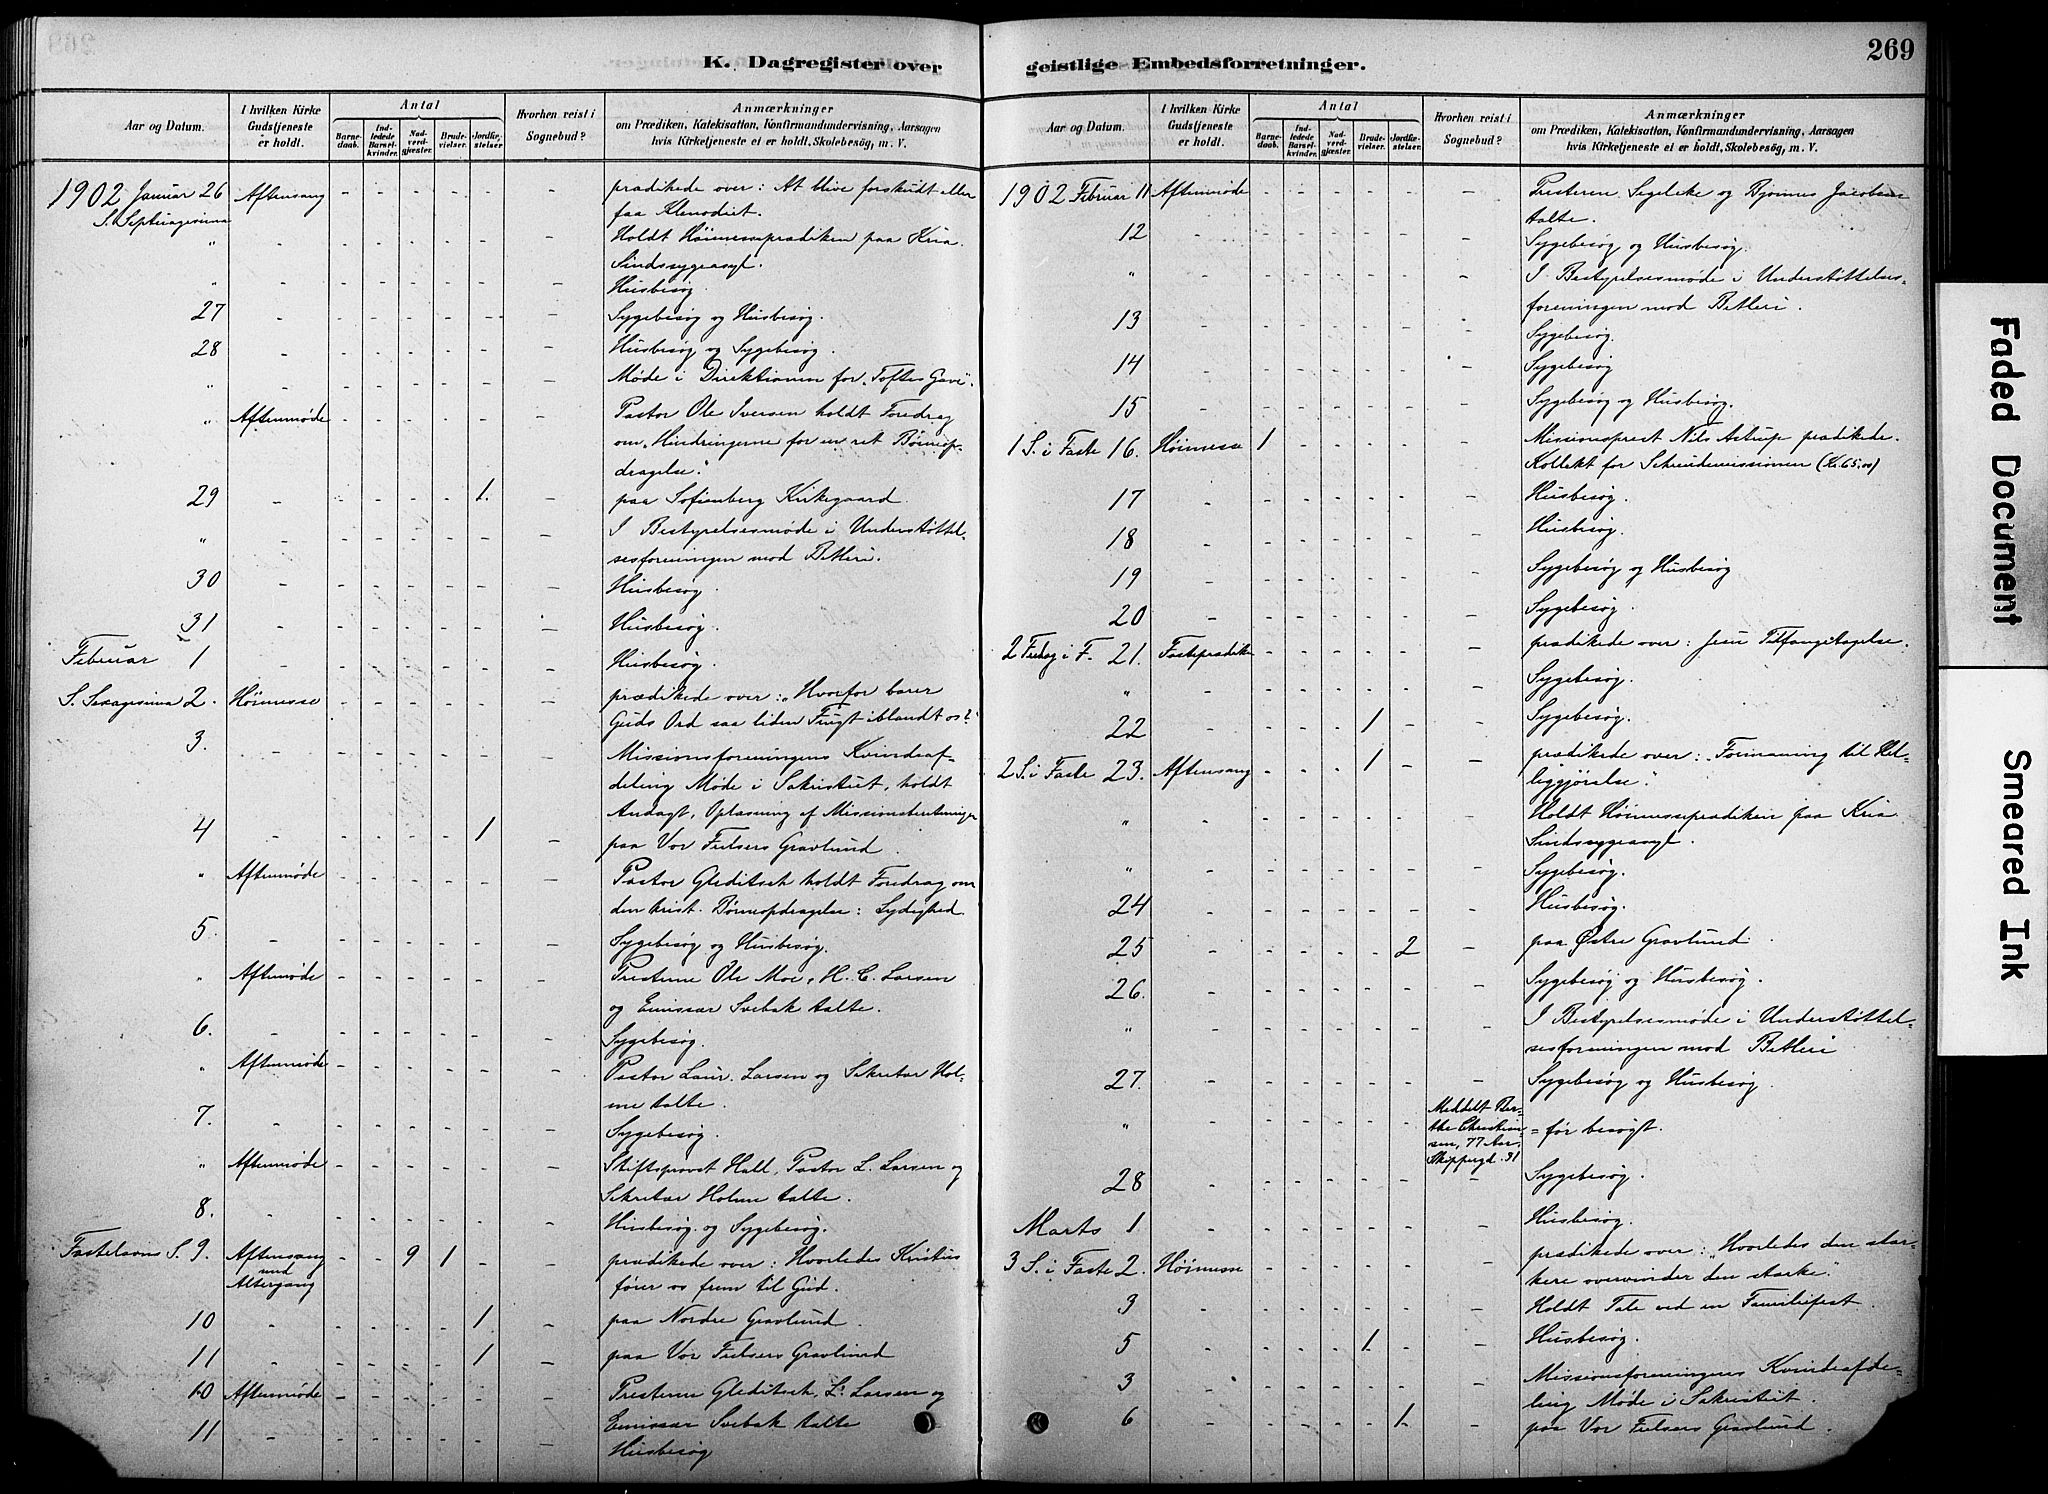 269
K. Dagregister over
geistlige Embedsforretninger.
Aar og Datum.
I hvilken Kirke Gudstjeneste er holdt.
Antal
Barnedaab.
Indledede Barselkvinder.
Nadverdgjæster.
Brudevielser.
Jordfæstelser.
Hvorhen reist i Sognebud?
Anmærkninger
om Prædiken, Katekisation, Konfirmandundervisning, Aarsagen
hvis Kirketjeneste ei er holdt, Skolebesøg, m. V.
1902 Januar 26 Aftensang - - - - - - prædikede over: At blive forskudt eller
S. Septuagesima faa Klenodiet.
" - - - - - - - Holdt Høimesseprædiken paa Kria
Sindssygeasyl.
" - - - - - - - Husbesøg
27 - - - - - - - Sygebesøg og Husbesøg.
28 - - - - - - - Husbesøg og Sygebesøg.
" - - - - - - - Møde i Direktionen for "Toftes Gave".
" Aftenmøde - - - - - - Pastor Ole Iversen holdt Foredrag
om "Hindringerne for en ret Børneop-
dragelse."
29 - - - - - 1. - paa Sofienberg Kirkegaard.
" - - - - - - - I Bestyrelsesmøde i Understøttel-
sesforeningen mod Betleri.
30 - - - - - - - Husbesøg
31 - - - - - - - Husbesøg.
Februar 1 - - - - - - - Husbesøg.
S. Sexagesima 2. Høimesse - - - - - - prædikede over: "Hvorfor bærer
Guds Ord saa liden Frugt iblandt os?"
3. - - - - - - - Missionsforeningens Kvindeaf-
deling Møde i Sakristiet, holdt
Andagt, Oplæsning af Missionsberetninger
4 - - - - - 1 - paa Vor Frelsers Gravlund.
" Aftenmøde - - - - - - Pastor Gleditsch holdt Foredrag om
den krist. Børneopdragelse: Lydighed
5. - - - - - - - Sygebesøg og Husbesøg.
" Aftenmøde - - - - - - Presterne Ole Moe, H. C. Larsen
og Emissær Svebak talte.
6. - - - - - - - Sygebesøg.
" Aftenmøde - - - - - - Pastor Laur. Larsen og Sekretær Hol-
me talte.
7. - - - - - - - Sygebesøg.
" Aftenmøde - - - - - - Stiftsprovst Hall, Pastor L. Larsen og
Sekretær Holme talte.
8. - - - - - - - Husbesøg og Sygebesøg.
Fastelavns S. 9. Aftensang - - 9 1 - - prædikede over: Hvorledes Kristus
med Altergang fører os frem til Gud.
10 - - - - - 1 - paa Nordre Gravlund.
11 - - - - - 1 - paa Vor Frelsers Gravlund
10 Aftenmøde - - - - - - Presterne Gleditsch, L. Larsen og
Emissær Svebak talte
11 - - - - - - - Husbesøg
Aar og Datum.
I hvilken Kirke Gudstjeneste er holdt.
Antal
Barnedaab.
Indledede Barselkvinder.
Nadverdgjæster.
Brudevielser.
Jordfæstelser.
Hvorhen reist i Sognebud?
Anmærkninger
om Prædiken, Katekisation, Konfirmandundervisning, Aarsagen
hvis Kirketjeneste ei er holdt, Skolebesøg, m. V.
1902 Februar 11 Aftenmøde - - - - - - Presterne og Bjørnes Jacobsen
talte.
12 - - - - - - - Sygebesøg og Husbesøg.
" - - - - - - - I Bestyrelsesmøde i Understøttelses-
foreningen mod Betleri.
13 - - - - - - - Sygebesøg.
14 - - - - - - - Sygebesøg
15 - - - - - - - Sygebesøg og Husbesøg.
1 S. i Faste 16. Høimesse 1 - - - - - Missionsprest Nils Astrup prædikede.
Kollekt for Schreudermissionen (Kr. 65.00)
17 - - - - - - - Husbesøg.
18 - - - - - - - Husbesøg.
19 - - - - - - - Sygebesøg og Husbesøg
20 - - - - - - - Sygebesøg.
2 Fredag i F. 21. Fasteprædike - - - - - - prædikede over: Jesu Tilfangetagelse.
" - - - - - - - Sygebesøg.
22 - - - - 1 - - Sygebesøg.
2 S. i Faste 23. Aftensang - - - 1 - - prædikede over: "Formaning til Hel-
liggjørelse".
" - - - - - - - Holdt Høimesseprædiken paa Kria
Sindssygeasyl.
" - - - - - - - Sygebesøg.
24 - - - - - - - Husbesøg.
25 - - - - - 2 - paa Østre Gravlund.
26. - - - - - - - Sygebesøg og Husbesøg.
" - - - - - - - I Bestyrelsesmøde i Understøttel-
sesforeningen mod Betleri
27. - - - - - - - Sygebesøg og Husbesøg.
" - - - - - - Meddelt Ber-
the Christian-
sen, 77 Aar,
Skippergd. 31
= før besøgt.
28 - - - - - - - Sygebesøg.
Marts 1 - - - - - - - Husbesøg.
3 S. i Faste 2. Høimesse - - - - - - prædikede over: "Hvorledes den stær-
kere overvinder den stærke".
3 - - - - - - - Holdt Tale ved en Familiefest.
5 - - - - 1 - - Husbesøg.
3 - - - - - - - Missionsforeningens Kvindeafde-
ling Møde i Sakristiet.
6 - - - - - 1 - paa Vor Frelsers Gravlund
Faded Document
Smeared Ink